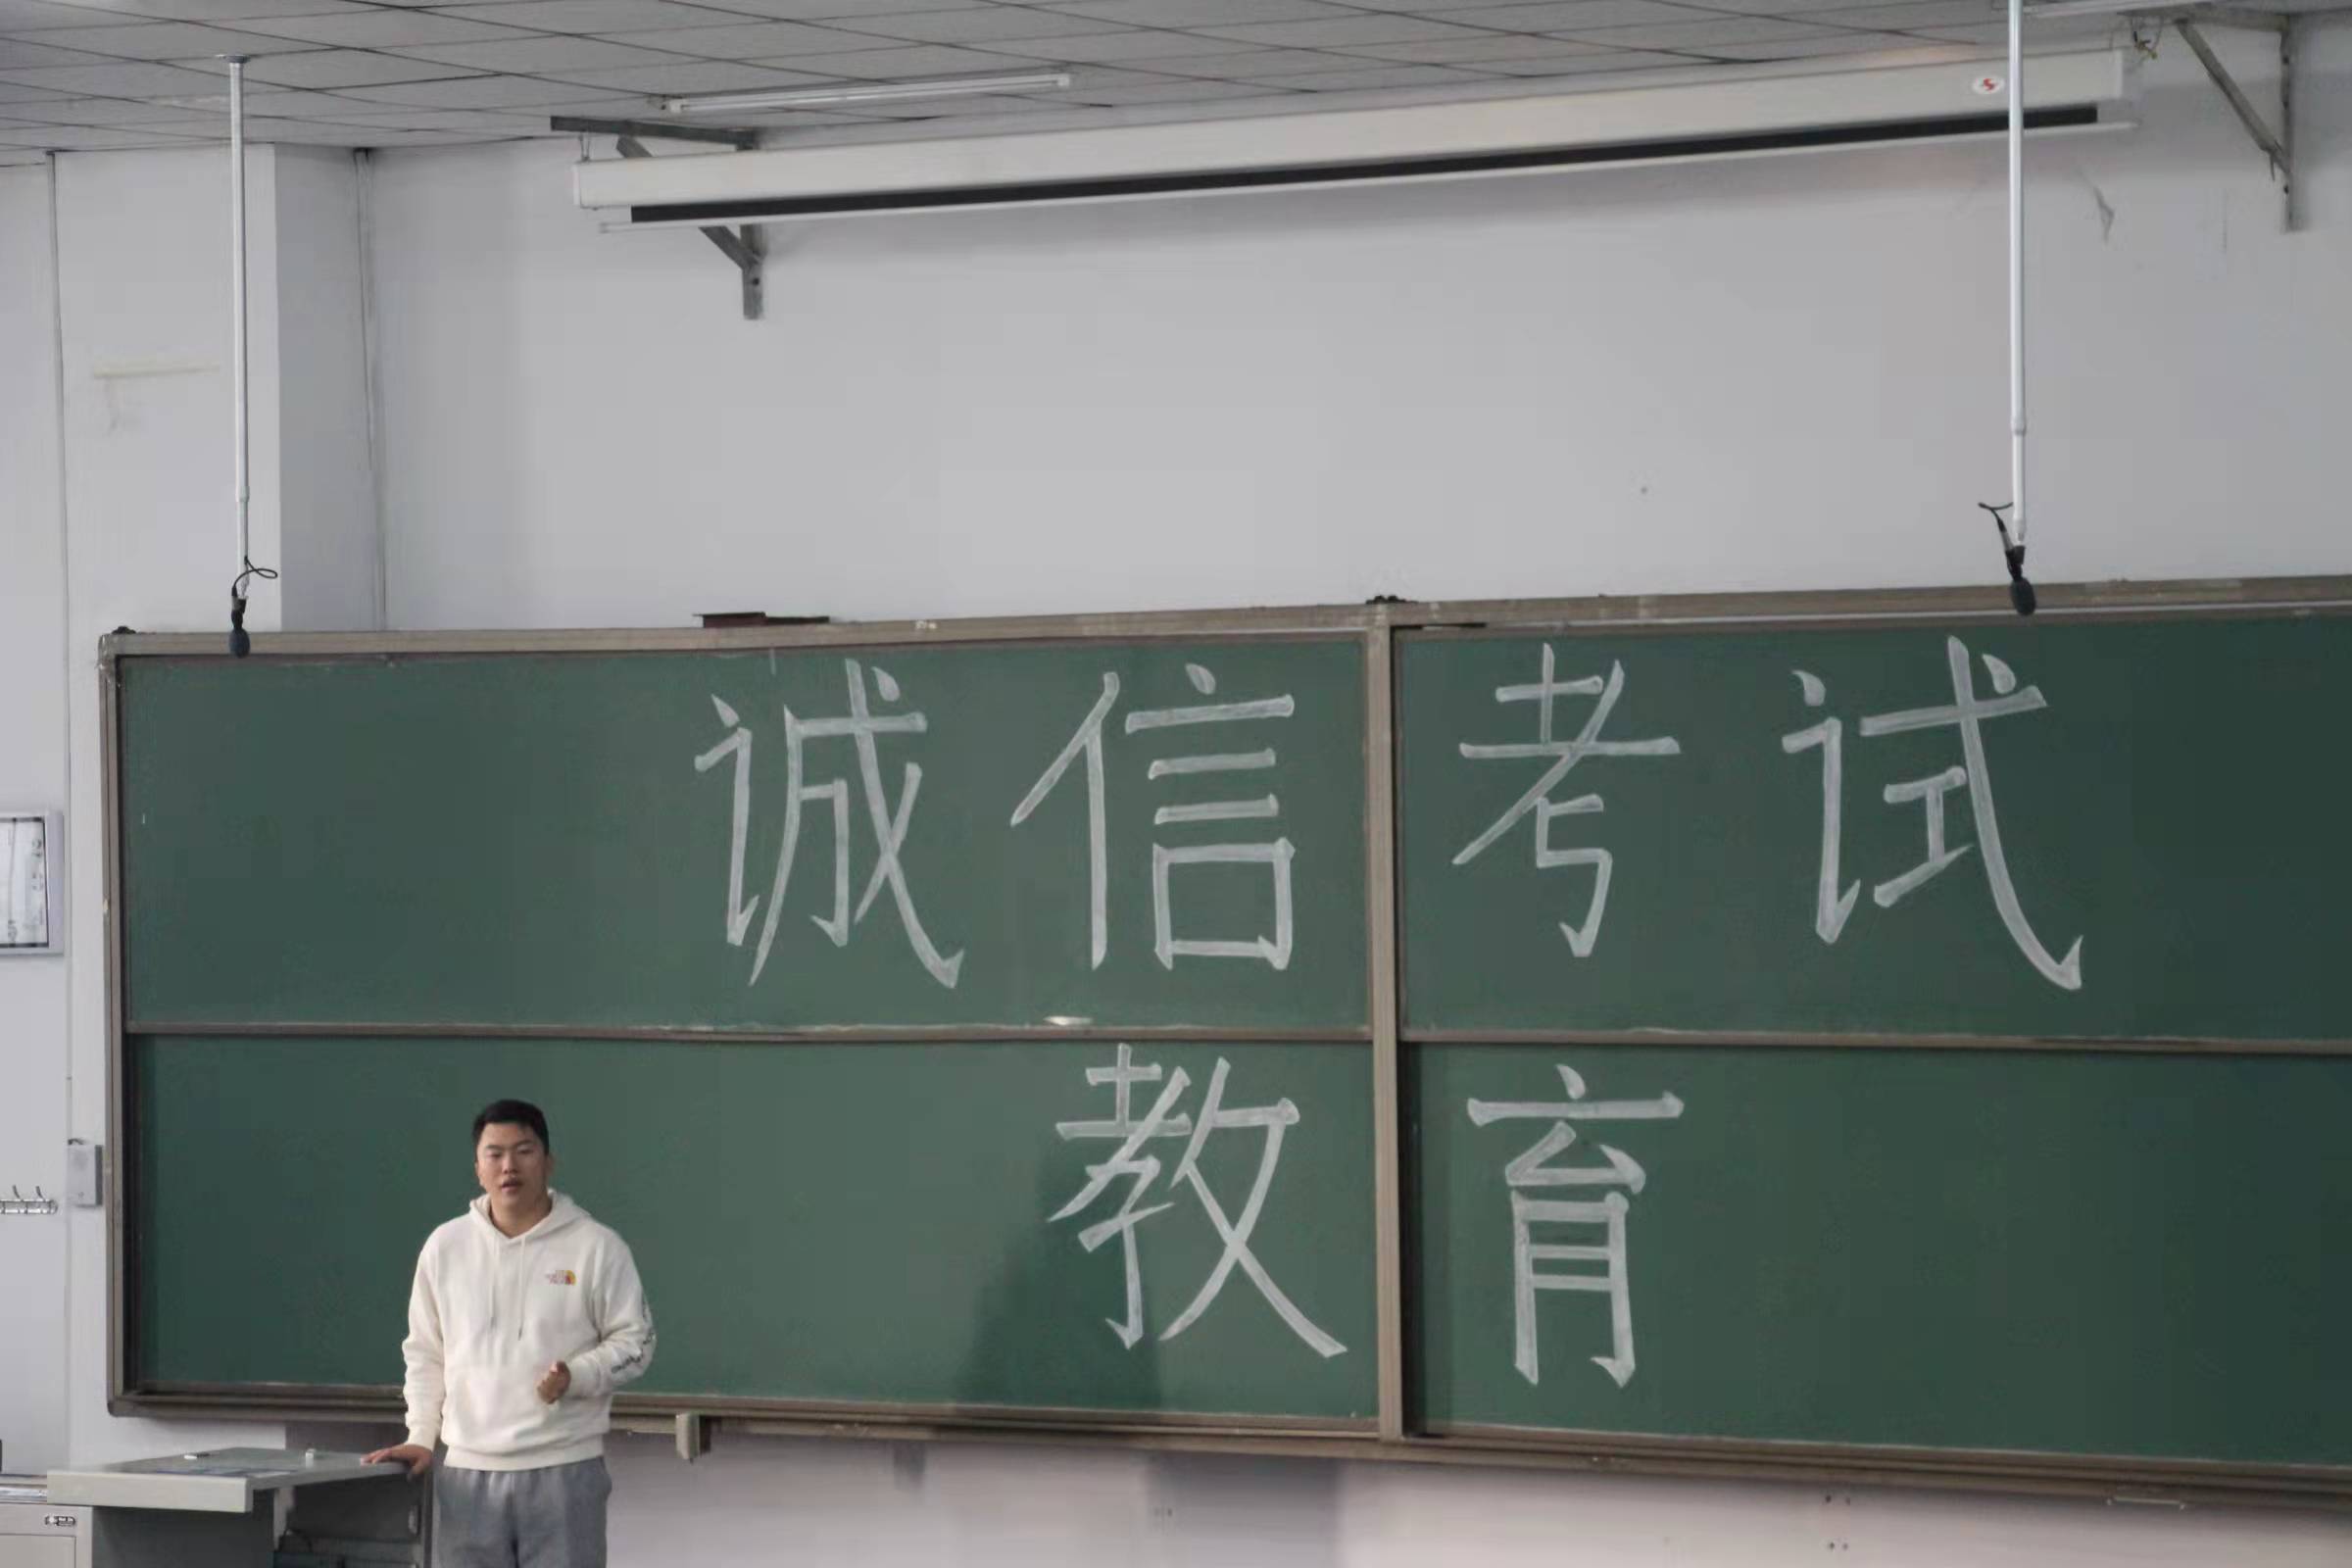 诚信考试
教育